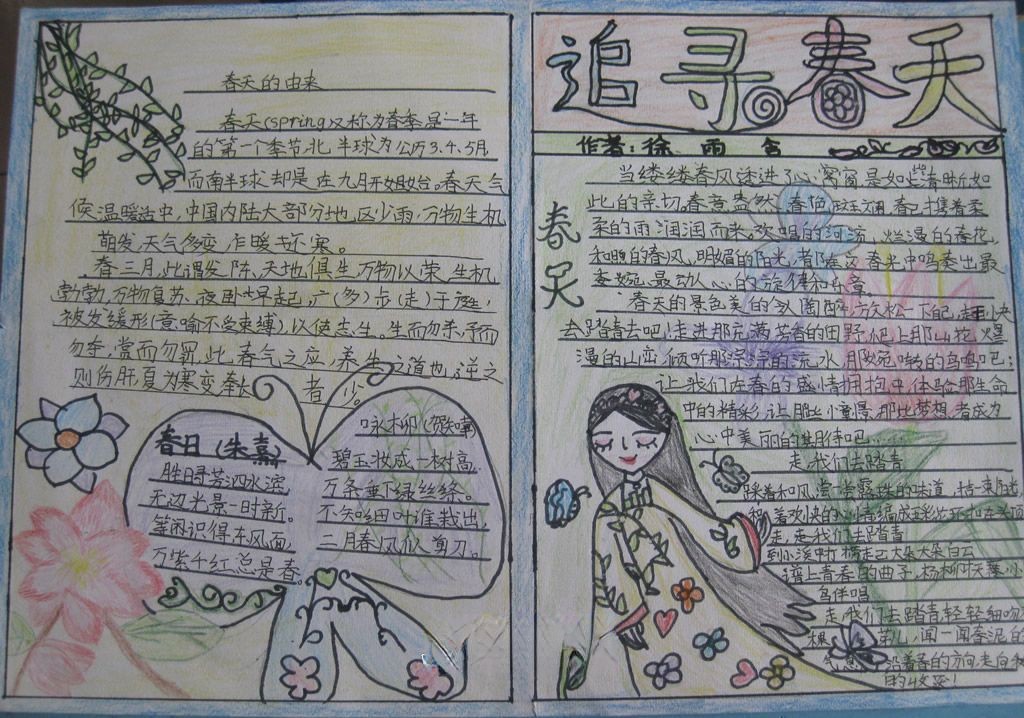 春天的由来
春天(spring)又称为春季是一年
的第一个季节,北半球为公历3.4.5月
而南半球却是在九月开始。春天气
候温暖适中,中国内陆大部分地区少雨,万物生机
萌发,天气多变,乍暖还寒。
春三月,此谓发陈,天地俱生,万物以荣,生机
勃勃,万物复苏、夜卧早起,广(多)步(走)于庭,
被发缓形(意喻不受束缚),以使志生。生而勿杀,予而
勿夺,赏而勿罚,此春气之应,养生之道也,逆之
则伤肝,夏为寒变,奉长者少。
春日(朱熹)
胜日寻芳泗水滨,
无边光景一时新。
等闲识得东风面,
万紫千红总是春。
咏柳(
碧玉妆成一树高
万条垂下绿丝绦。
不知细叶谁裁出,
二月春风似剪刀。
追寻春天
作者:徐雨
春天
当缕缕春风透进了心窗窗是如
此的亲切,春意盎然,春色斑斓,春已携着柔
柔的雨润润而来,欢唱的河流,烂漫的春花,
和煦的春风,明媚的阳光,都在春光中鸣奏出最
委婉、最动人心的旋律和乐章
春天的景色美的令人陶醉,放松一下自己,赶快
去踏青去吧!走进那充满芳香的田野,爬上那山花烂
漫的山峦,倾听那淙淙的流水,那宛啭的鸟鸣吧;
让我们在春的盛情拥抱中,体验那生命
中的精彩,让那些憧憬,那些梦想,都成为
心中美丽的
走,我们去踏青
踩着和风,尝尝露珠的味道,
走,走我们去踏青
到小溪中打捞起大朵大朵白云
谱上青春的曲子,杨柳
鸟伴唱
走我们去踏青,轻轻细吻
棵 草儿,闻一闻春泥的
沿着春的方向,走向
的收